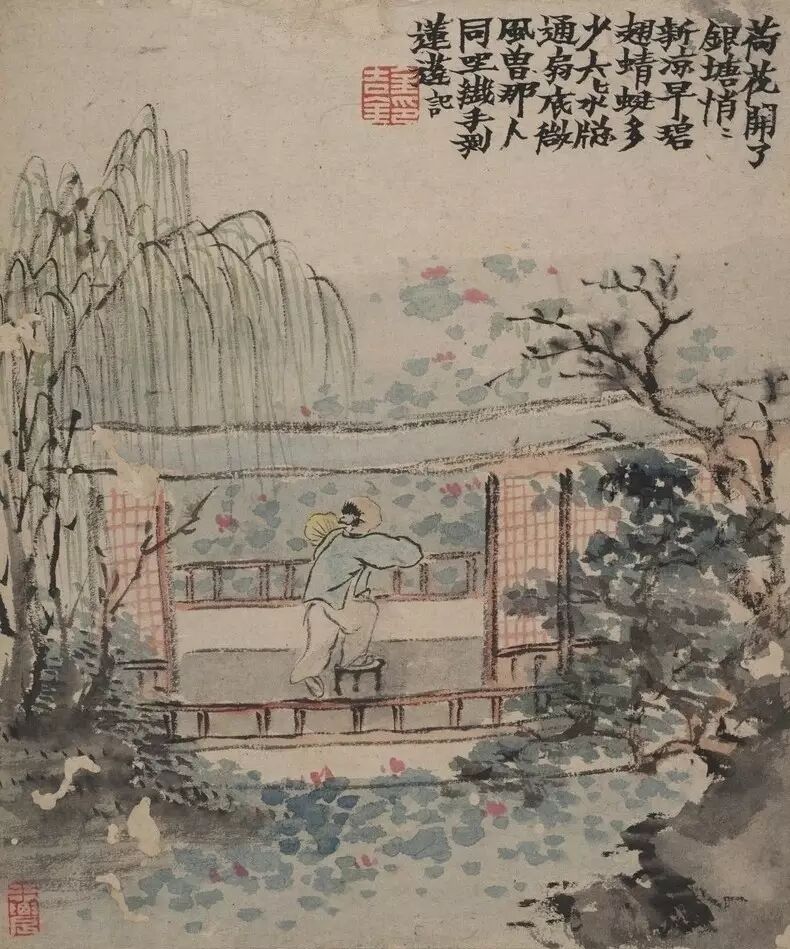 荷花開了
銀塘悄〻
新涼早碧
翅蜻蜓多
少六〻水牕
通扇底微
風曾那人
同坐纖手剝
蓮蓬記